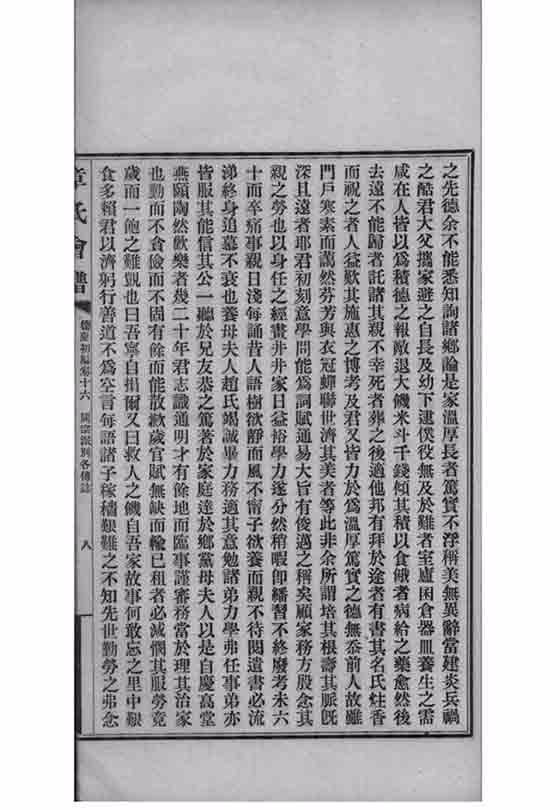 之先德余不能悉知詢諸鄉論是家溫厚長者篤實不浮稱美無異辭當建炎兵禍
之酷君大父攜家避之自長及幼下逮僕役無及於難者室廬囷倉器皿養生之需
咸在人皆以為積德之報敵退大饑米斗千錢傾其積以食餓者病給之藥愈然後
去遠不能歸者託諸其親不幸死者葬之後適他邦有拜於途者有書其名氏炷香
而祝之者人益歎其施惠之博考及君又皆力於為溫厚篤實之德無忝前人故雖
門戶寒素而藹然芬芳與衣冠蟬聯世濟其美者等此非余所謂培其根壽其脈旣
深且遠者耶君初刻意學問能為詞賦通易大旨有俊邁之稱矣顧家務方殷念其
親之勞也以身任之經畫井井家日益裕學力遂分然稍暇卽繙習不終廢考未六
十而卒痛事親日淺每誦昔人語樹欲靜而風不甯子欲養而親不待閱遺書必流
涕終身追慕不衰也養母夫人趙氏竭誠畢力務適其意勉諸弟力學弗任事弟亦
皆服其能信其公一聽於兄友恭之篤著於家庭達於鄉黨母夫人以是自慶高堂
燕頤陶然歡樂者幾二十年君志識通明才有餘地而臨事謹審務當於理其治家
也勤而不貪儉而不固有餘而能散歉歲官賦無缺而輸已租者必減憫其服勞竟
歲而一飽之難覬也曰吾寧自損爾又曰救人之饑自吾家故事何敢忘之里中艱
食多賴君以濟躬行善道不為空言每語諸子稼穡艱難之不知先世勤勞之弗念
章氏會譜
德慶初編卷十六
八